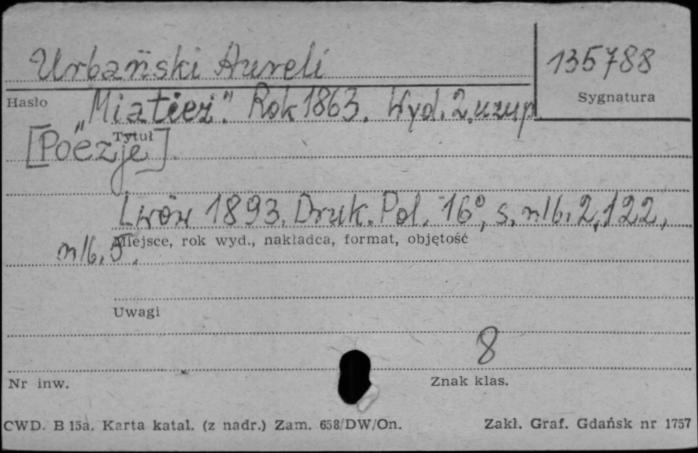 Urbański Aureli
135788
Hasło
Sygnatura
"Miatież". Rok 1863. Wyd. 2, uzup
Tytuł
[Poezje].
Lwów 1893. Druk. Pol. 16°, s. nlb. 2, 122,
Miejsce, rok wyd., nakładca, format, objętość
nlb. 5.
Uwagi
8
Nr inw.
Znak klas.
CWD. B 15a. Karta katal. (z nadr.) Zam. 658/DW/On.
Zakł. Graf. Gdańsk nr 1757